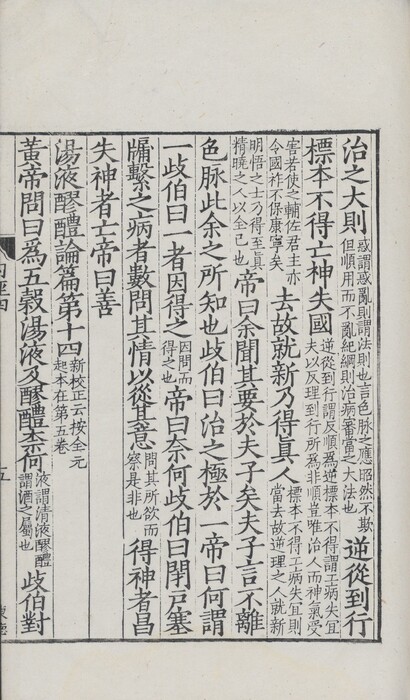 治之大則惑謂惑亂則謂法則也言色脉之應昭然不欺但順用而不亂紀綱則治病審當之大法也逆從到行
標本不得亡神失國逆從到行謂反順爲逆標本不得謂工病失宜夫以反理到行所爲非順豈唯治人而神氣受
害若使之輔佐君主亦令國祚不保康寧矣去故就新乃得眞人標本不得工病失宜則當去故逆理之人就新
明悟之士乃得至眞精曉之人以全己也帝曰余聞其要於夫子矣夫子言不離
色脉此余之所知也歧伯曰治之極於一帝曰何謂
一歧伯曰一者因得之因問而得之也帝曰柰何歧伯曰閉戸塞
牖繫之病者數問其情以從其意問其所欲而察是非也得神者昌
失神者亡帝曰善
湯液醪醴論篇第十四新校正云按全元起本在第五卷
黃帝問曰爲五穀湯液及醪醴柰何液謂清液醪醴謂酒之屬也歧伯對
五